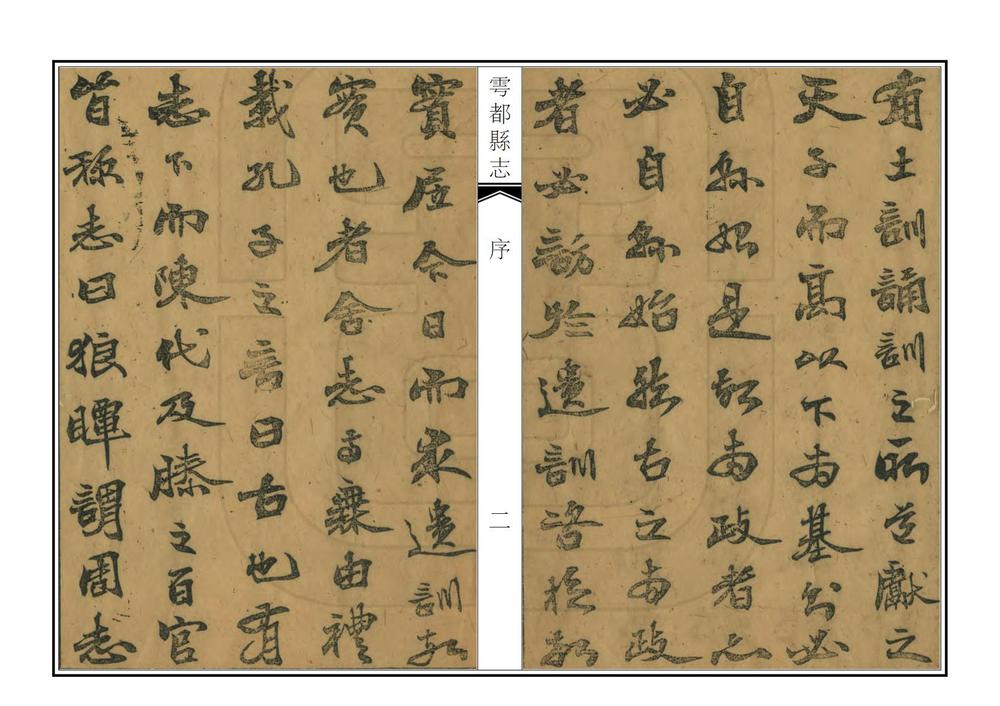 雩都縣志
序
二
有土訓誦訓之所道獻之
天子而高以下為基則必
自縣始是故為政者亦
必自縣始然古之為政
者必訪於遺訓咨於故
實居今日而求遺訓故
實也者舍志蔑由禮
載孔子之言曰古也有
志下而陳代及滕之百官
皆稱志曰狼瞫謂周志